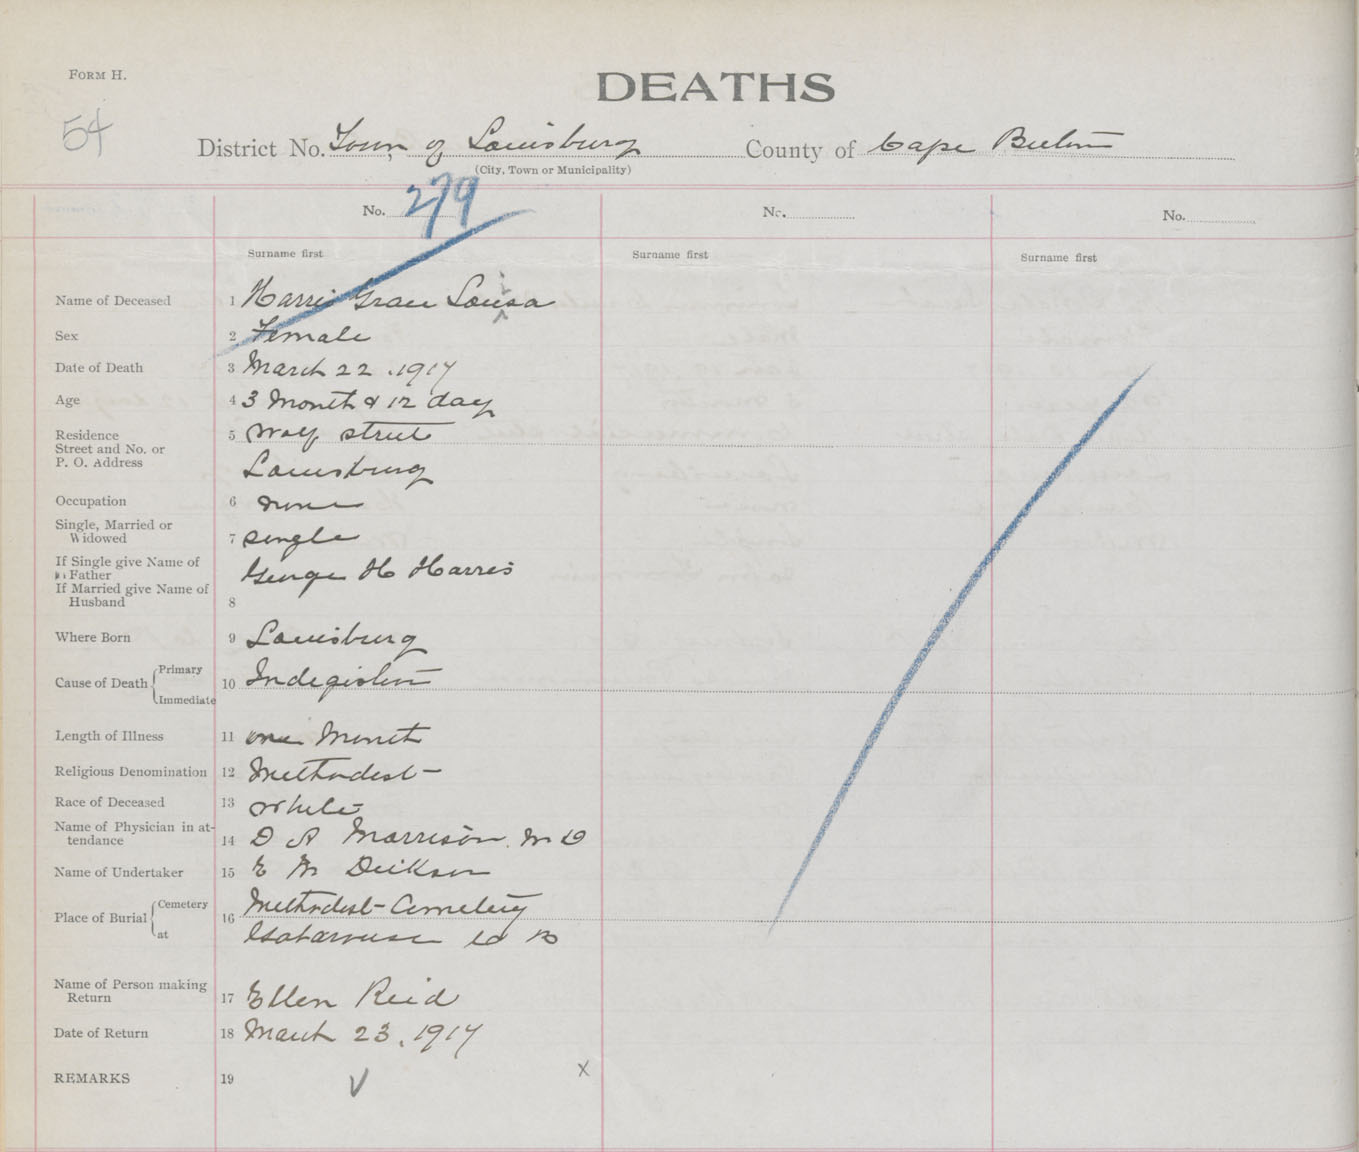 FORM H.
DEATHS
54
District No. Town of Louisburg County of Cape Breton
(City, Town or Municipality)
No. 279 No. No.
Surname first Surname first Surname first
Name of Deceased 1 Harris Grace Lousa
i
^
Sex 2 Female
Date of Death 3 March 22, 1917
Age 4 3 Month & 12 day
Residence 5 Wolf street
Street and No. or
P. O. Address Louisburg
Occupation 6 none
Single, Married or
Widowed 7 single
If Single give Name of
Father George H Harris
If Married give Name of
Husband 8
Where Born 9 Louisburg
Cause of Death Primary 10 Indegistion
Immediate
Length of Illness 11 one Month
Religious Denomination 12 Methodest
Race of Deceased 13 White
Name of Physician in at-
tendance 14 D A Morrison. M D
Name of Undertaker 15 E M Dickson
Place of Burial Cemetery 16 Methodest Cemetery
at C B
Name of Person making
Return 17 Ellen Reid
Date of Return 18 March 23, 1917
REMARKS 19
x